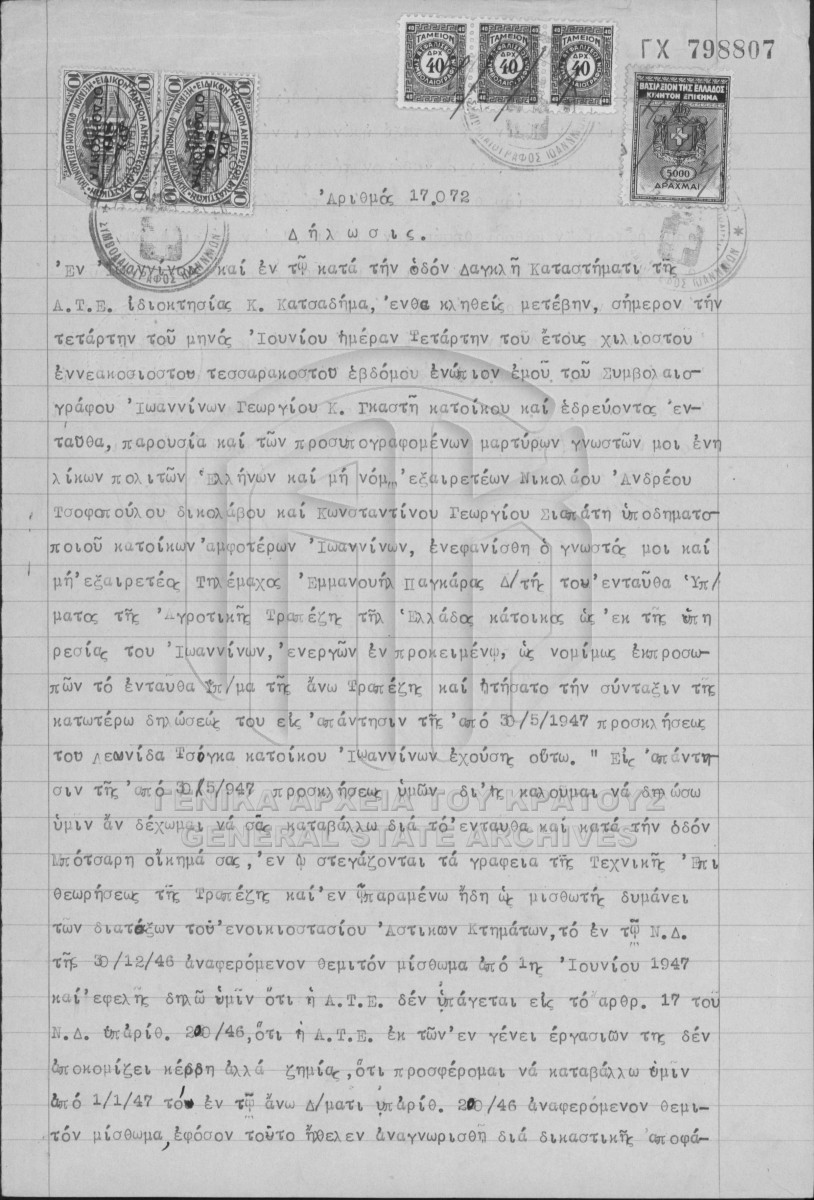 ΓΧ 798807
ΤΑΜΕΙΟΝ ΤΑΜΕΙΟΝ ΤΑΜΕΙΟΝ
ΔΡΧ ΔΡΧ ΔΡΧ
40 40 40
ΒΑΣΙΛΕΙΟΝ ΤΗΣ ΕΛΛΑΔΟΣ
ΚΙΝΗΤΟΝ ΕΠΙΣΗΜΑ
5000
ΔΡΑΧΜΑΙ
Ἀριθμός 17.072
Δήλωσις.
Ἐν Ἰωαννίνοις καί ἐν τῷ κατά τήν ὁδόν Δαγκλῆ Καταστήματι τῆς
Α.Τ.Ε. ἰδιοκτησίας Κ. Κατσαδήμα, ἔνθα κληθείς μετέβην, σήμερον τήν
τετάρτην τοῦ μηνός Ἰουνίου ἡμέραν Τετάρτην τοῦ ἔτους χιλιοστου
ἐννεακοσιοστου τεσσαρακοστοῦ ἑβδόμου ἐνώπιον ἐμοῦ τοῦ Συμβολαιο-
γράφου Ἰωαννίνων Γεωργίου Κ. Γκαστῆ κατοίκου καί ἑδρεύοντος ἐν-
ταῦθα, παρουσία καί τῶν προσυπογραφομένων μαρτύρων γνωστῶν μοι ἐνη
λίκων πολιτῶν Ἑλλήνων καί μή νόμ,, ἐξαιρετέων Νικολάου Ἀνδρέου
Τσοφοπούλου δικολάβου καί Κωνσταντίνου Γεωργίου Σιαπάτη ὑποδηματο-
ποιοῦ κατοίκων ἀμφοτέρων Ἰωαννίνων, ἐνεφανίσθη ὁ γνωστός μοι καί
μή ἐξαιρετέος Τηλέμαχος Ἐμμανουήλ Παγκάρας Δ/τής του ἐνταῦθα Ὑπ/
ματος τῆς Ἀγροτικῆς Τραπέζης τῆλ Ἑλλάδος κάτοικος ὡς ἐκ τῆς ὑπη
ρεσίας του Ἰωαννίνων, ἐνεργῶν ἐν προκειμένῳ, ὡς νομίμως ἐκπροσω-
πῶν τό ἐνταῦθα Ὑπ/μα τῆς ἄνω Τραπέζης καί ᾐτήσατο τήν σύνταξιν τῆς
κατωτέρω δηλώσεώς του εἰς ἀπάντησιν τῆς ἀπό 30/5/1947 προσκλήσεως
του Λεωνίδα Τσόγκα κατοίκου Ἰωαννίνων ἐχούσης οὕτω. " Εἰς ἀπάντη
σιν τῆς ἀπό 30/5/947 προσκλήσεως ὑμῶν δι'ἧς καλοῦμαι νά δηλώσω
ὑμῖν ἄν δέχωμαι νά σᾶς καταβάλλω διά τό ἐνταυθα καί κατά τήν ὁδόν
Μπότσαρη οἴκημά σας, ἐν ᾧ στεγάζονται τά γραφεῖα τῆς Τεχνικῆς Ἐπι
θεωρήσεως τῆς Τραπέζης καί ἐν ᾧ παραμένω ἤδη ὡς μισθωτής δυμάνει
τῶν διατάξων τοῦ ἐνοικιοστασίου Ἀστικῶν Κτημάτων, τό ἐν τῷ Ν.Δ.
τῆς 30/12/46 ἀναφερόμενον θεμιτόν μίσθωμα ἀπό 1ης Ἰουνίου 1947
καί ἐφεξῆς δηλῶ ὑμῖν ὅτι ἡ Α.Τ.Ε. δέν ὑπάγεται εἰς τό ἄρθρ. 17 τοῦ
Ν.Δ. ὑπ'ἀρίθ. 200/46, ὅτι ἡ Α.Τ.Ε. ἐκ τῶν ἐν γένει ἐργασιῶν της δέν
ἀποκομίζει κέρδη ἀλλά ζημίας, ὅτι προσφέρομαι νά καταβάλλω ὑμῖν
ἀπό 1/1/47 τό ἐν τῷ ἄνω Δ/ματι ὑπ'ἀρίθ. 200/46 ἀναφερόμενον θεμι-
τόν μίσθωμα, ἐφόσον τοῦτο ἤθελεν ἀναγνωρισθῆ διά δικαστικῆς ἀποφά-
ΓΕΝΙΚΑ ΑΡΧΕΙΑ ΤΟΥ ΚΡΑΤΟΥΣ
GENERAL STATE ARCHIVES